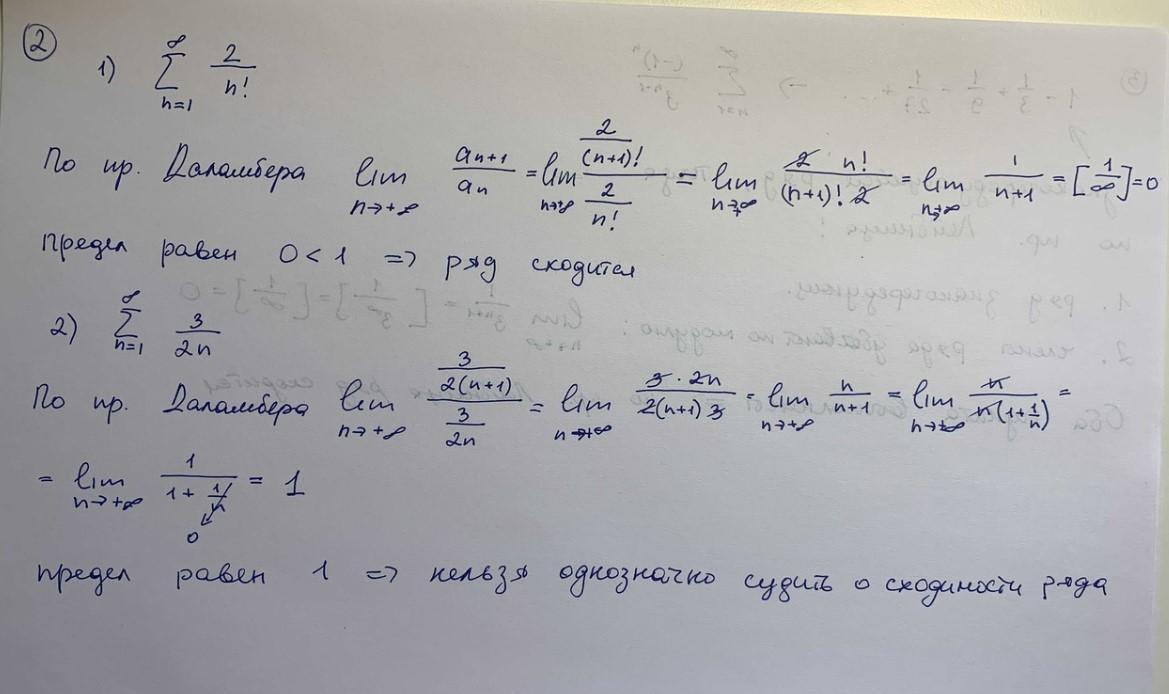 ②
1) ∑_{n=1}^{∞} 2/n!
По пр. Даламбера lim_{n→+∞} a_{n+1}/a_n = lim_{n→+∞} (2/(n+1)!)/(2/n!) = lim_{n→+∞} 2 n!/((n+1)! 2) = lim_{n→+∞} 1/(n+1) = [1/∞] = 0
предел равен 0 < 1 => ряд сходится
2) ∑_{n=1}^{∞} 3/2n
По пр. Даламбера lim_{n→+∞} (3/2(n+1))/(3/2n) = lim_{n→+∞} 3·2n/(2(n+1)3) = lim_{n→+∞} n/(n+1) = lim_{n→+∞} n/(n(1+1/n)) =
= lim_{n→+∞} 1/(1+1/n) = 1
0
предел равен 1 => нельзя однозначно судить о сходимости ряда